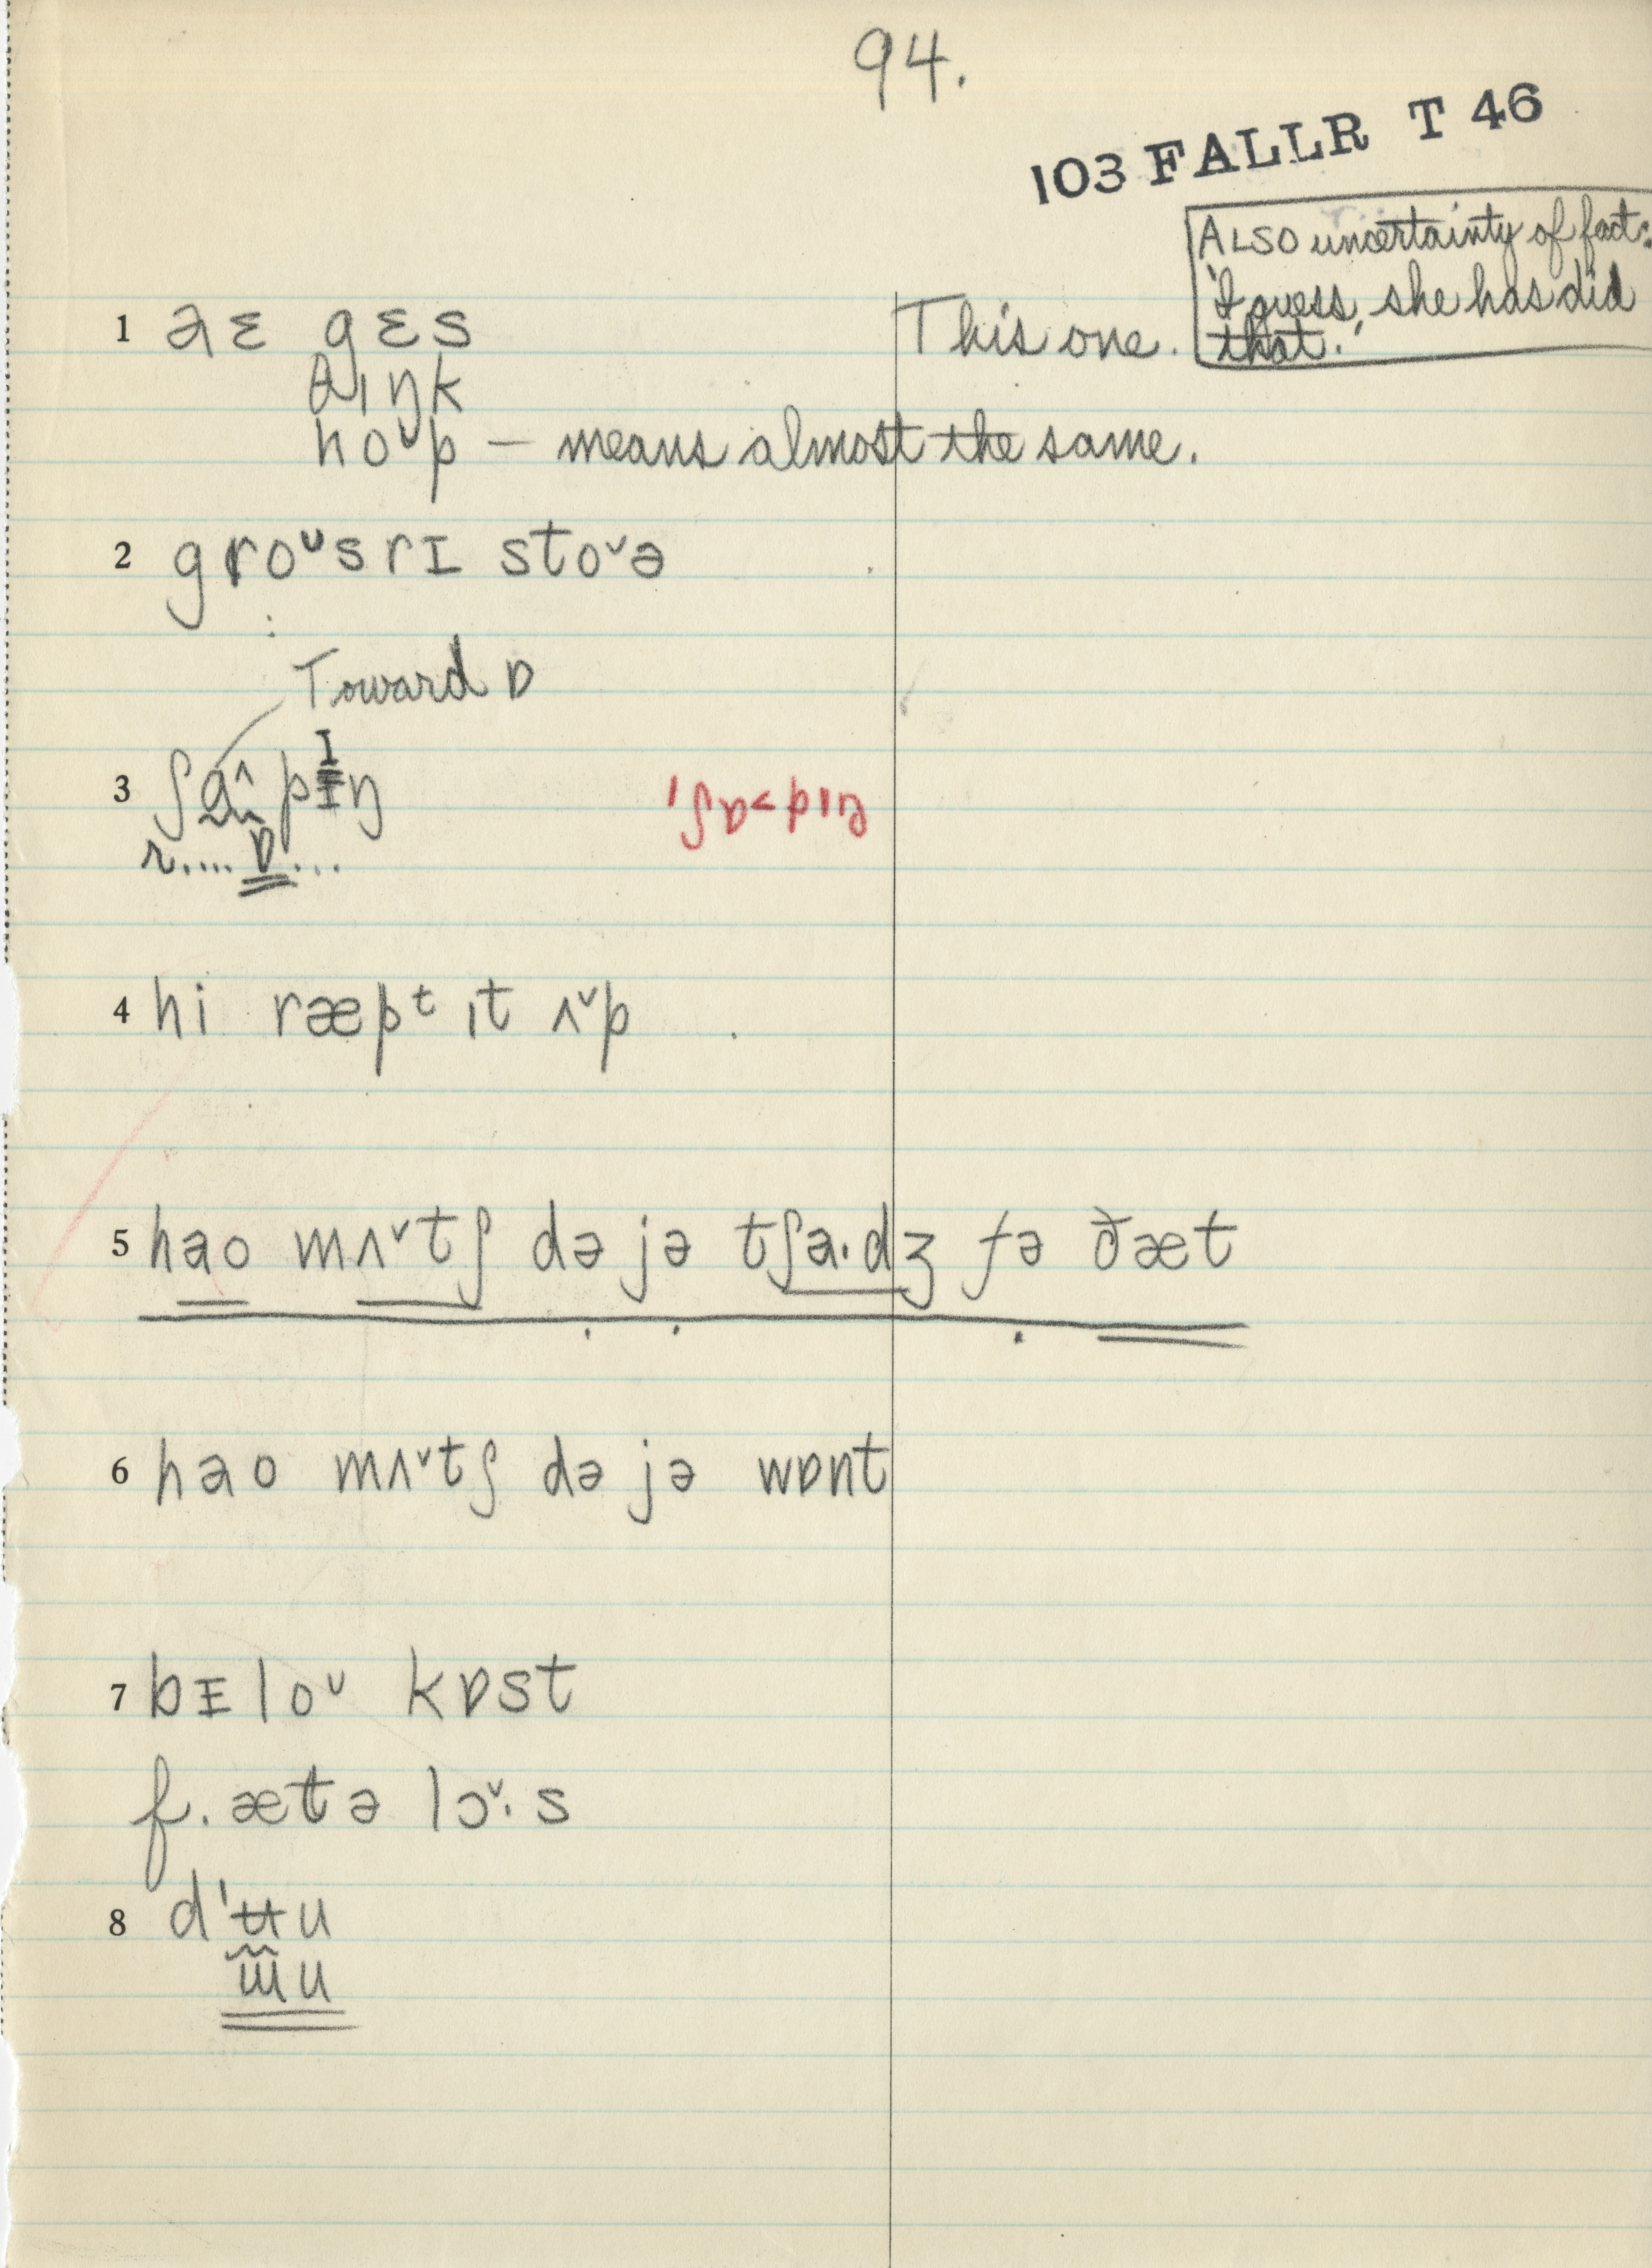 94.
103 FALLR T 46
ALSO uncertainty of fact:
'I guess, she has did
that.'
1 aɛ gɛs This one.
θɪŋk
hoᵛp – means almost the same.
2 groᵘsrɪ stoᵛə
Toward ɒ
3 ʃɑ^pɪŋ 'ʃɒ<pɪŋ
r.... ɒ...
4 hi ræpᵗ ɪt ʌᵛp
5 hao mʌᵛtʃ də jə tʃa·dʒ fə ðæt
6 hao mʌᵛtʃ də jə wɒnt
7 bɪloᵘ kɒst
f. ætə lɔᵛ·s
8 d'ʉu
ɯ̈u